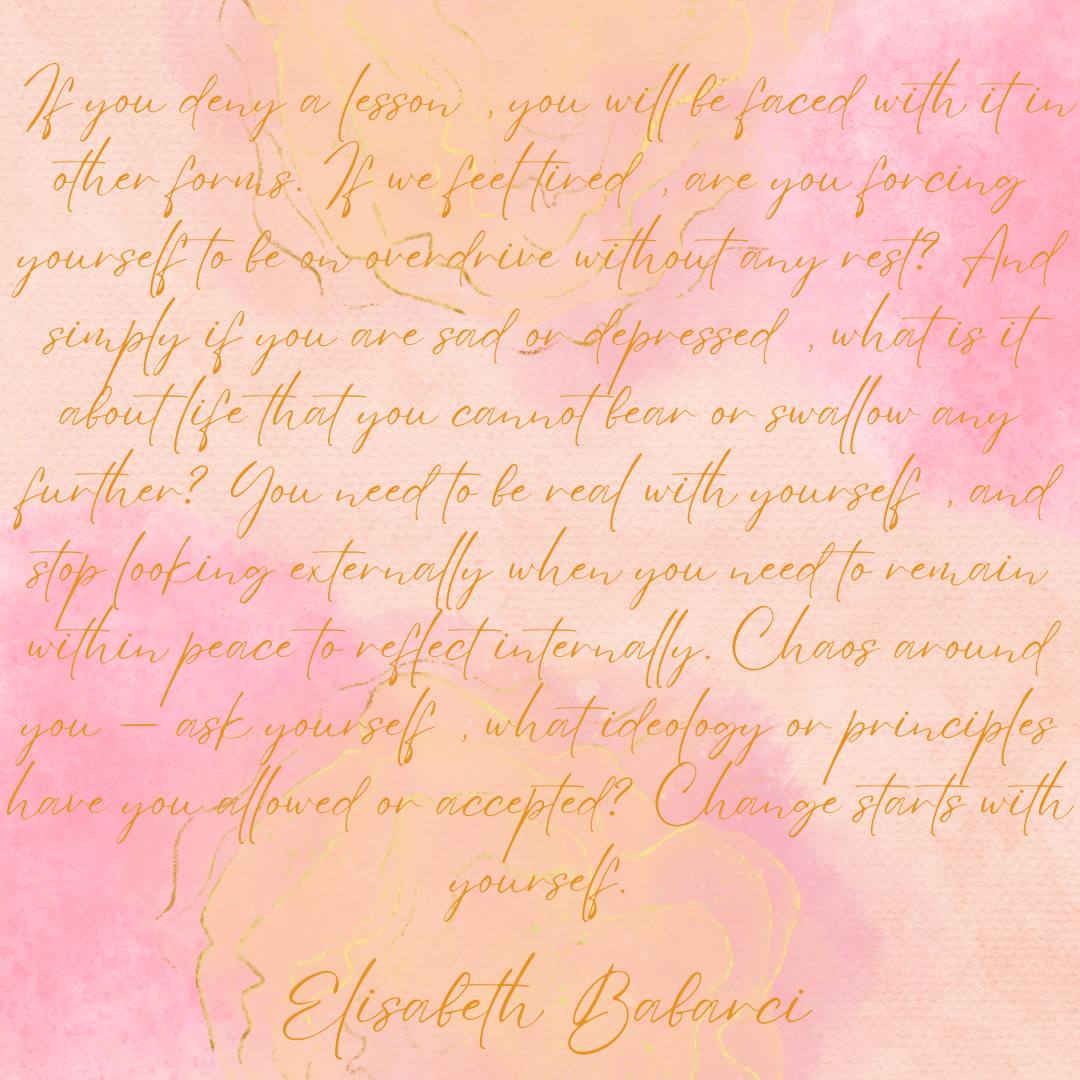 If you deny a lesson , you will be faced with it in
other forms. If we feel tired , are you forcing
yourself to be on overdrive without any rest? And
simply if you are sad or depressed , what is it
about life that you cannot bear or swallow any
further? You need to be real with yourself , and
stop looking externally when you need to remain
within peace to reflect internally. Chaos around
you – ask yourself , what ideology or principles
have you allowed or accepted? Change starts with
yourself.
Elisabeth Babarci